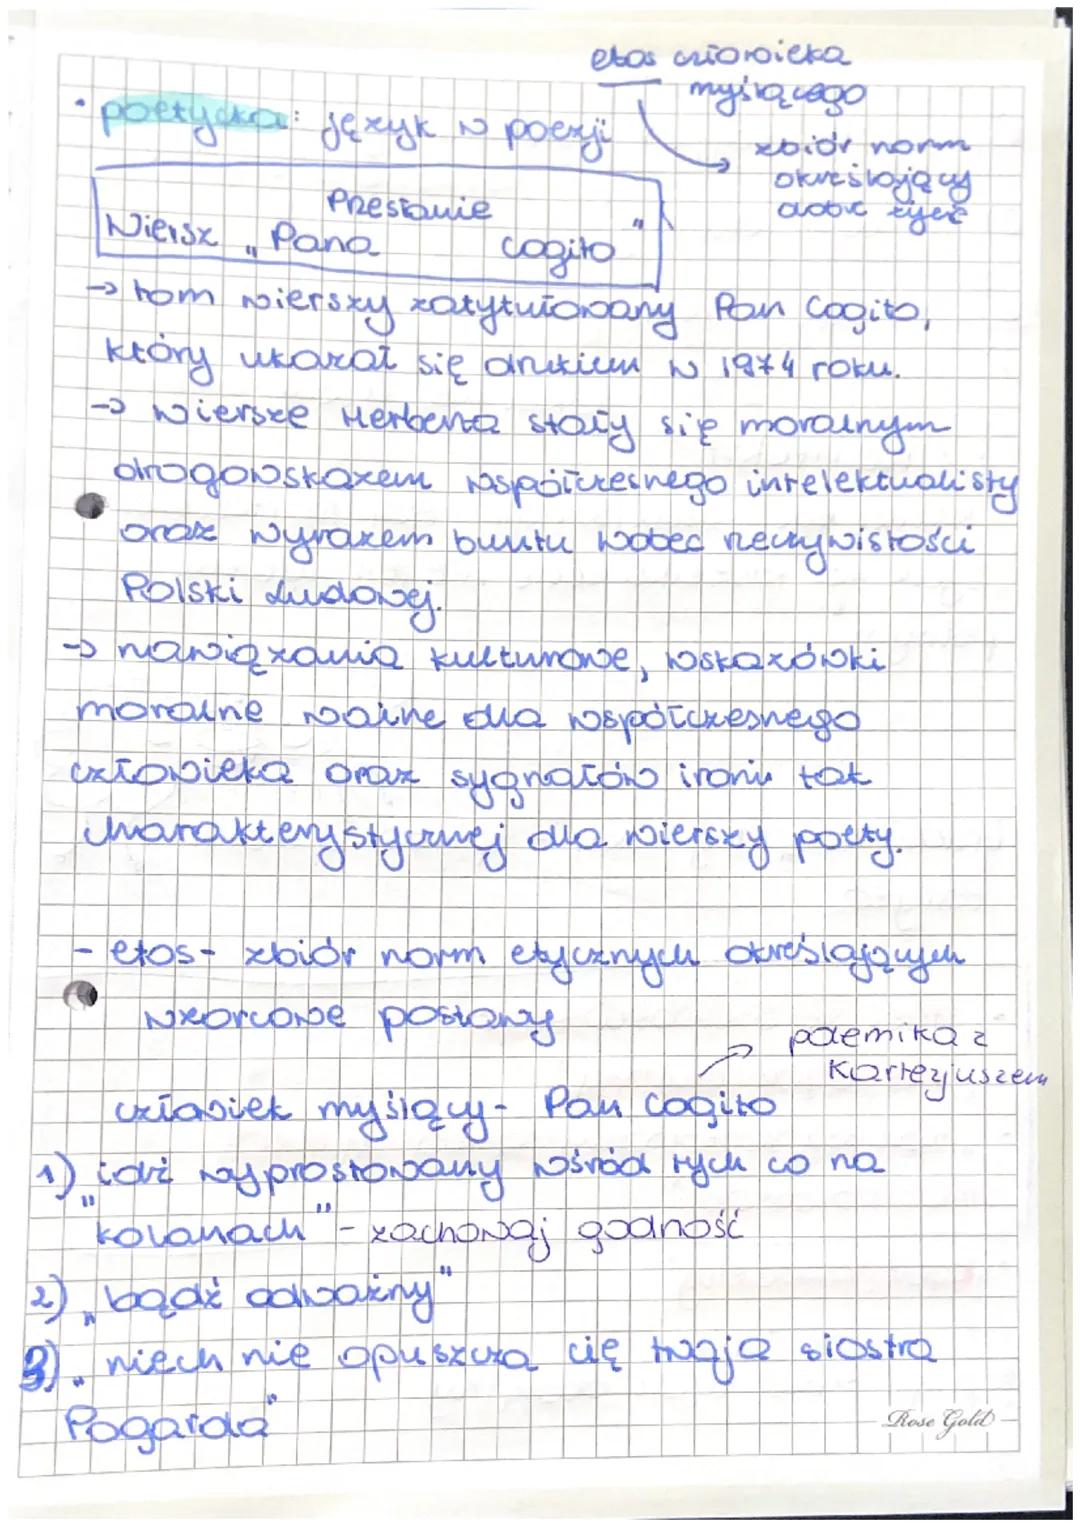 etos człowieka
myślącego
zbiór norm
określający
dobre życie
• poetycka: język w poezji
Przesłanie
Wiersz „Pana Cogito"
→ tom wierszy zatytułowany Pan Cogito,
który ukazał się drukiem w 1974 roku.
→ wiersze Herberta stały się moralnym
drogowskazem współczesnego intelektualisty
oraz wyrazem buntu wobec rzeczywistości
Polski Ludowej.
→ nawiązania kulturowe, wskazówki
moralne ważne dla współczesnego
człowieka oraz sygnałów ironii tak
charakterystycznej dla wierszy poety.
- etos - zbiór norm etycznych określającym
wzorcowe postawy
polemika z
Kartezjuszem
człowiek myślący - Pan Cogito
1) „idź wyprostowany wśród tych co na
kolanach" - zachowaj godność
2) „bądź odważny"
3) „niech nie opuszcza cię twoja siostra
Pogarda"
Rose Gold